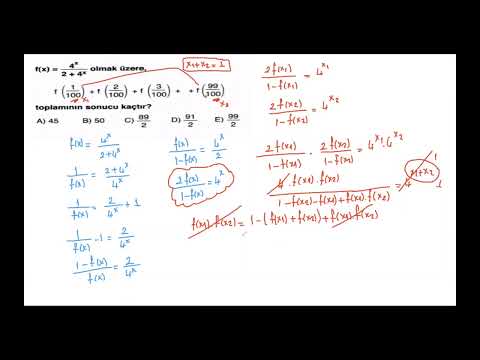 f(x) = 4ˣ / (2 + 4ˣ) olmak üzere,
x₁+x₂ = 1
f (1/100) + f (2/100) + f (3/100) + + f (99/100)
x₁ x₂
toplamının sonucu kaçtır?
A) 45 B) 50 C) 89/2 D) 91/2 E) 99/2
f(x) = 4ˣ / (2+4ˣ)
1/f(x) = (2+4ˣ)/4ˣ
1/f(x) = 2/4ˣ + 1
1/f(x) - 1 = 2/4ˣ
(1-f(x))/f(x) = 2/4ˣ
f(x)/(1-f(x)) = 4ˣ/2
2f(x)/(1-f(x)) = 4ˣ
2f(x₁)/(1-f(x₁)) = 4^x₁
2f(x₂)/(1-f(x₂)) = 4^x₂
2f(x₁)/(1-f(x₁)) · 2f(x₂)/(1-f(x₂)) = 4^x₁ · 4^x₂
4·f(x₁)·f(x₂) / (1-f(x₂)-f(x₁)+f(x₁)·f(x₂)) = 4^(x₁+x₂) 1 1
f(x₁)·f(x₂) = 1-(f(x₁)+f(x₂))+f(x₁)·f(x₂)